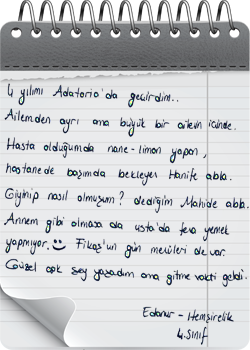 4 yılımı Adatorio'da geçirdim..
Ailemden ayrı ama büyük bir ailenin içinde.
Hasta olduğumda nane-limon yapan,
hastanede başımda bekleyen Hanife abla.
Giyinip nasıl olmuşum? dediğim Mahide abla.
Annem gibi olmasa da usta'da fena yemek
yapmıyor. Fikoş'un gün menüleri de var.
Güzel çok şey yaşadım ama gitme vakti geldi.
Edanur - Hemşirelik
4.sınıf